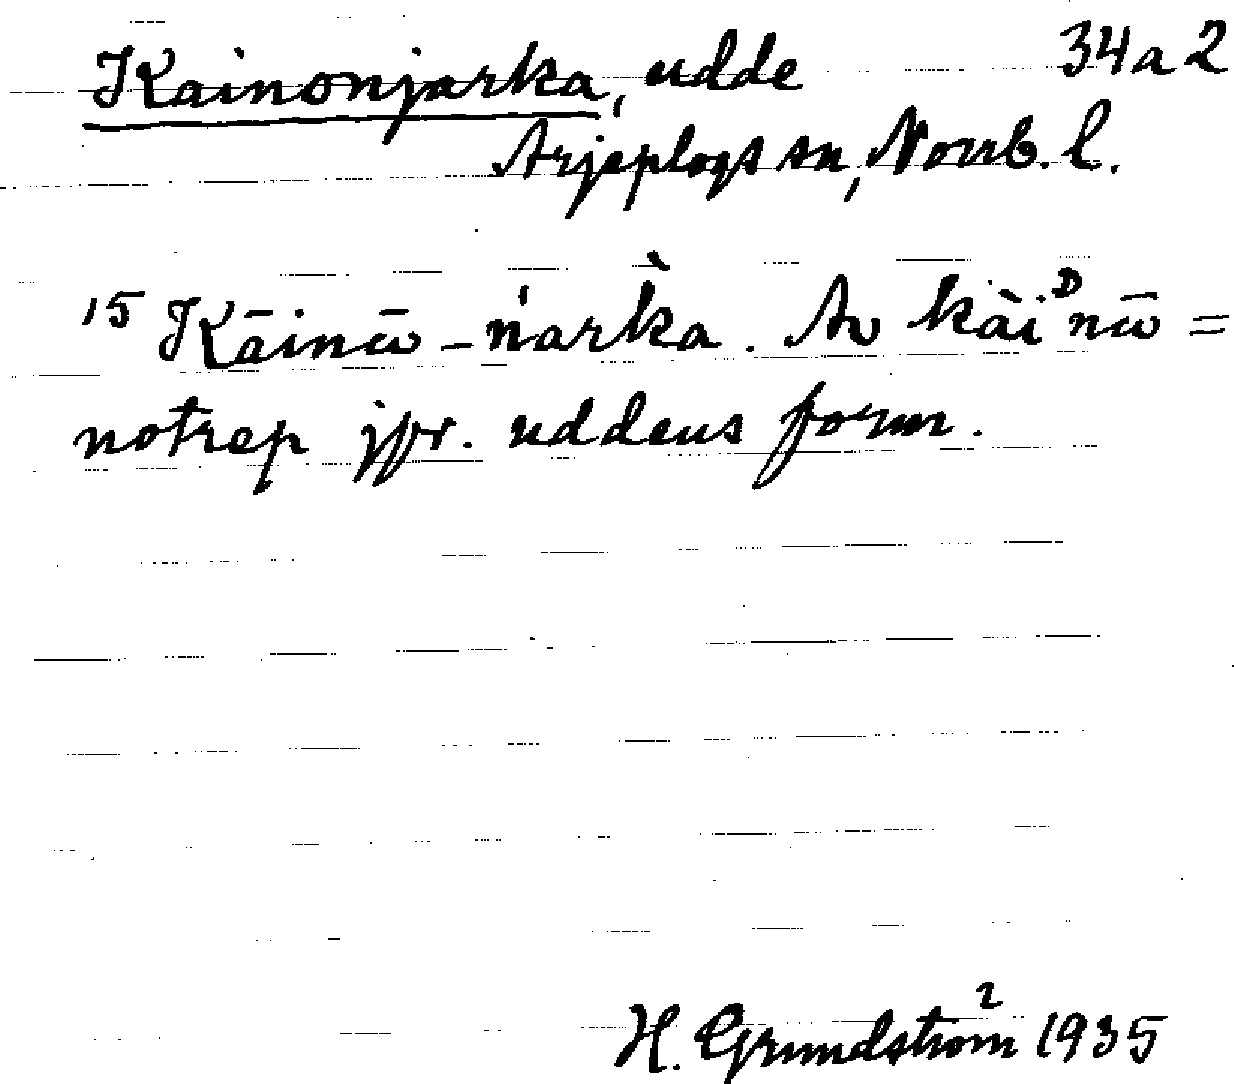 Kainonjarka, udde 34a2
Arjeplogs sn, Norrb. l.
15 Kāinū-ńàrka. Av kàiᴰnū =
notrep jfr. uddens form.
H. Grundström 1935